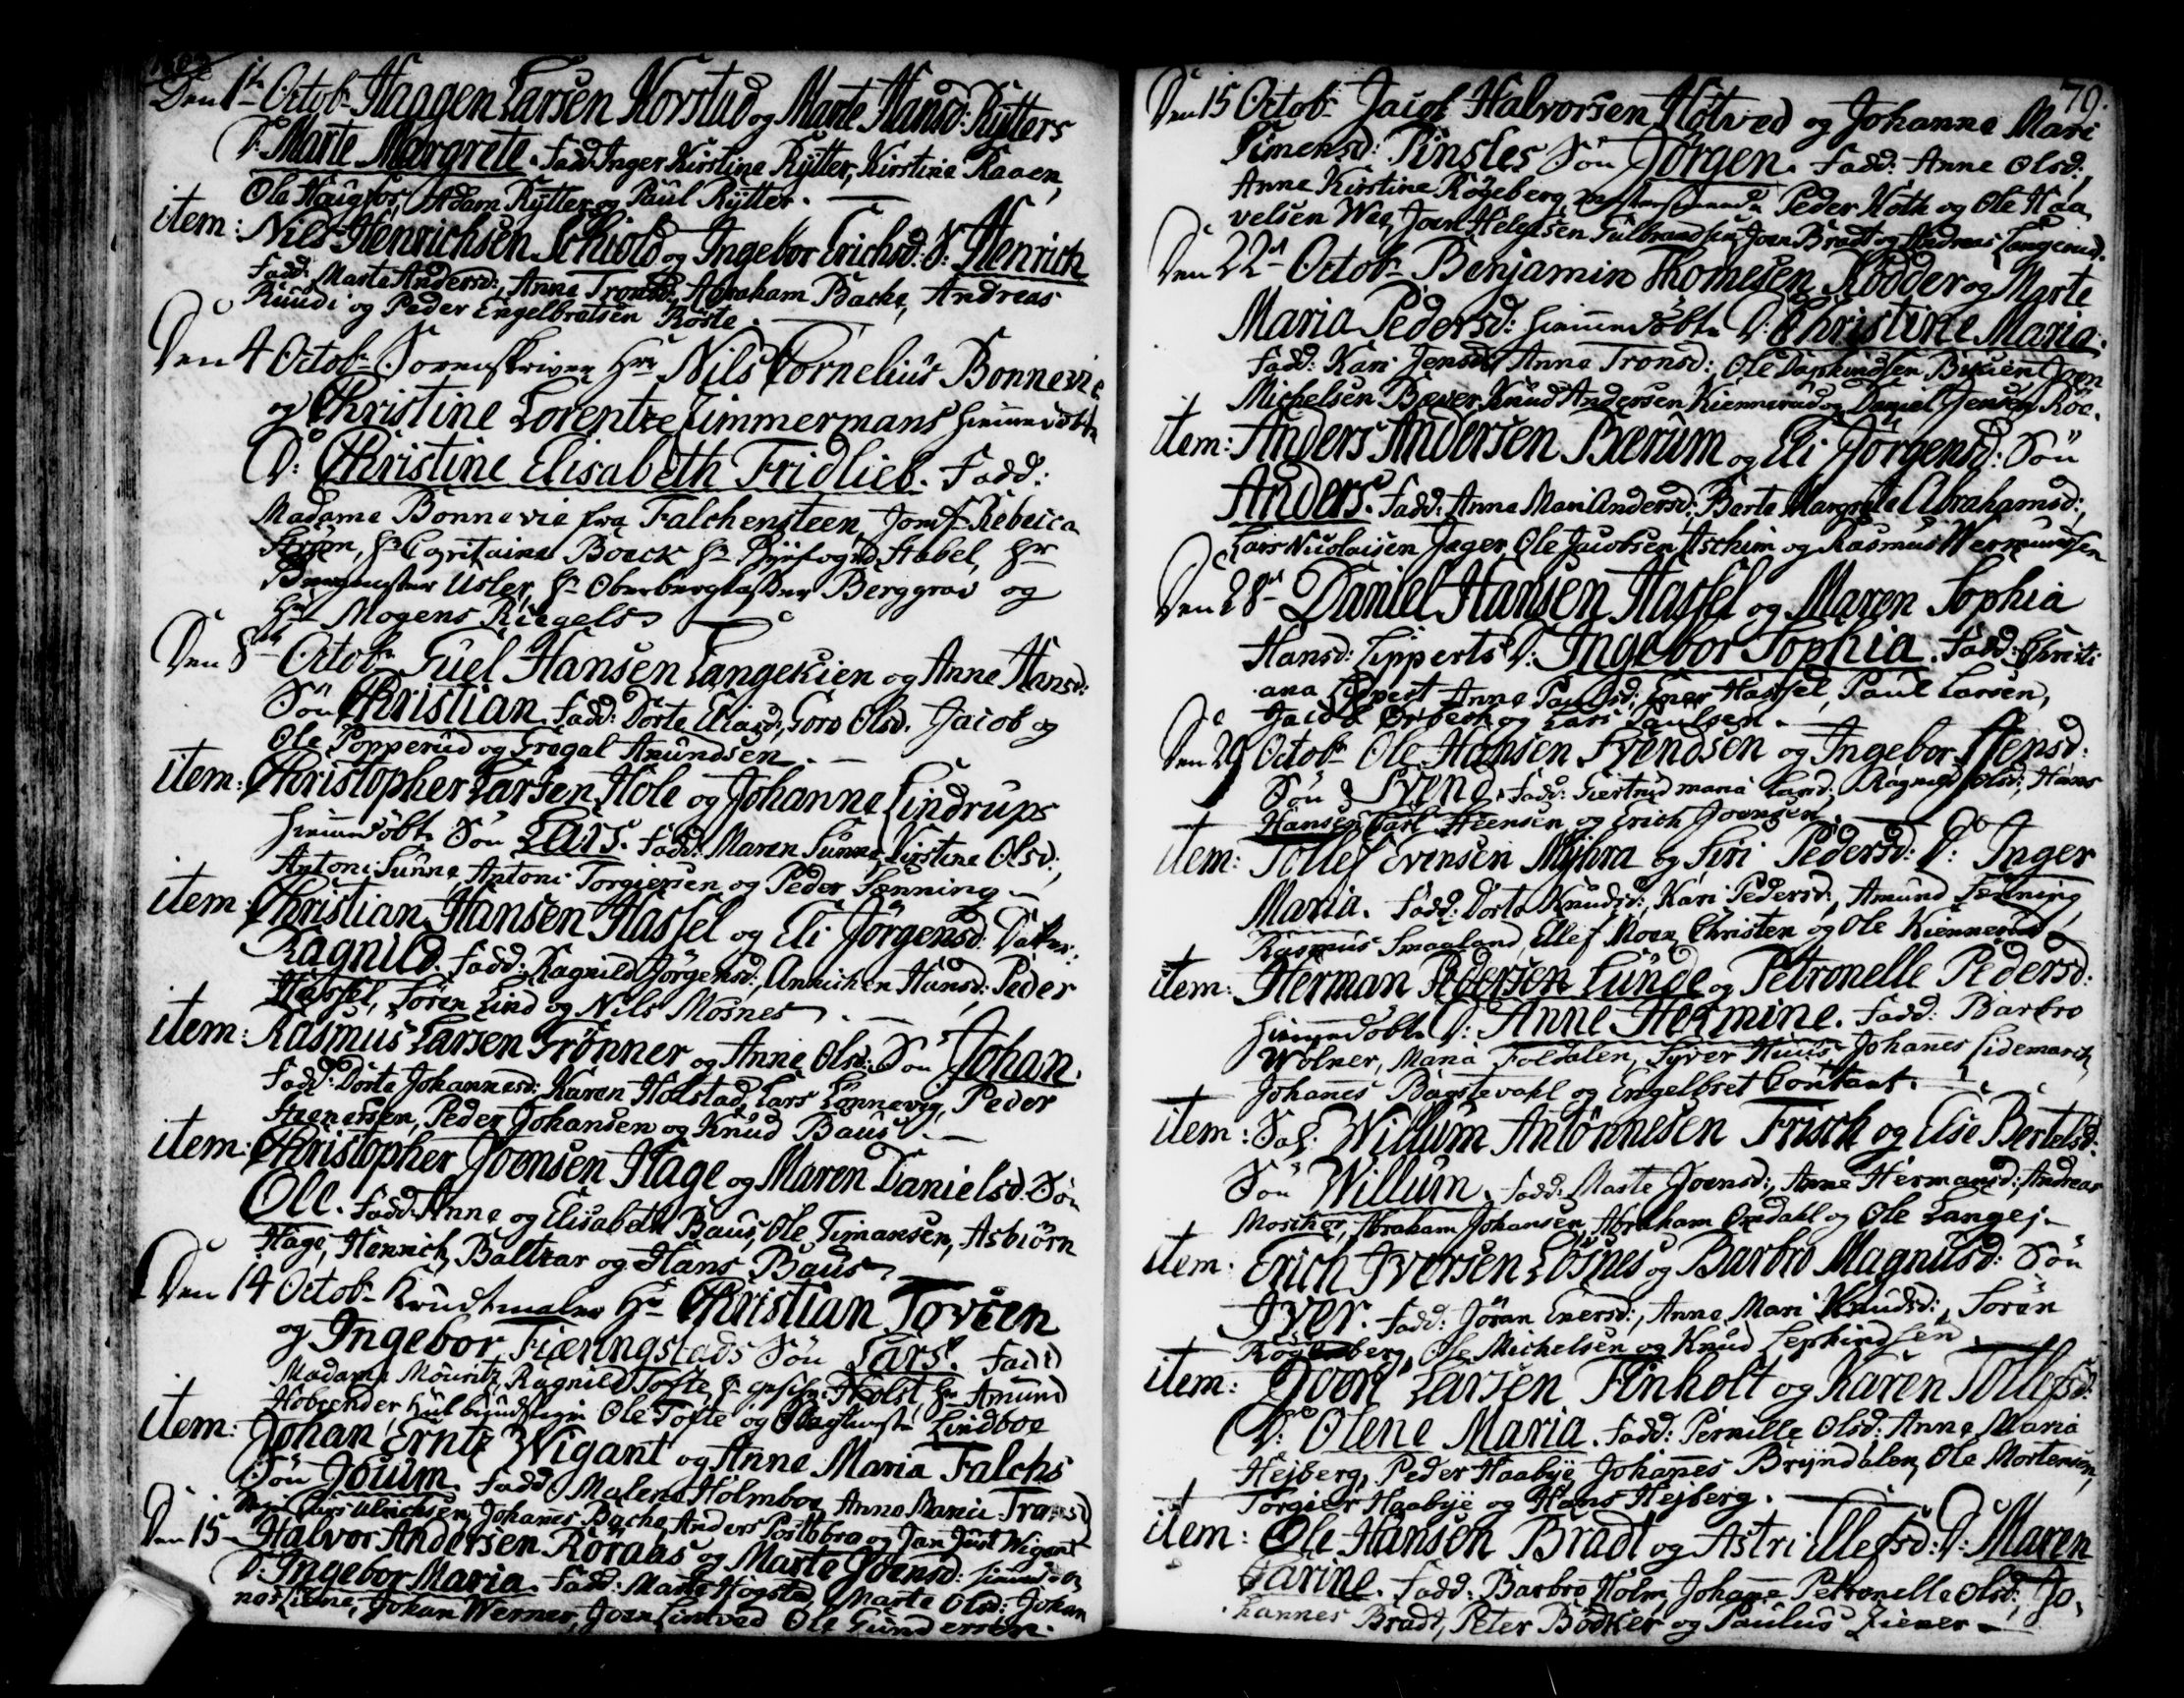 Den 1te Octobr Haagen Larsen Korstad og Marte Hansd: Rytters
D: Marte Margrete. Fadd: Inger Kirstine Rytter, Kirstine Raaen,
Ole Haugfos, Adam Rytter og Paul Rytter.
item: Nils Henrichsen Schiols og Ingebor Erichsd: S: Henrich
Fadd: Marte Andersd:, Anne Tronsd:, Abraham Bache, Andreas
Ruudi og Peder Engelbretsen Röste.
Den 4 Octobr Sorenskriver Hr Nils Cornelius Bonnevie
og Christine Lorentze Zimmermans hiemmedöbte
D: Christine Elisabeth Fridlieb. Fadd:
Madame Bonnevie fra Falchensteen, Jomf Rebecca
Hr Capitaine Boeck Hr Byefoged Stabel, Hr
Usler, Hr Oberbergasser Berggrav og
Hr Mogens Riegels
Den 8de Octobr Guel Hansen Langekien og Anne Hansd:
Sön Christian. Fadd: Dorte Eliasd:, Goro Olsd. Jacob og
Ole Popperud og Gregal Amundsen.
item: Christopher Larsen Hole og Johanne Lindrups
hiemmedöbte Sön Lars. Fadd: Maren Sunne, Kirstine Olsd:,
Antoni Sunne, Antoni Torgiersen og Peder Fenning
item: Christian Hansen Hassel og Eli Jörgensd: Dater:
Ragnild. Fadd: Ragnild Jörgensd:, Annichen Hansd: Peder
Hassel, Sören Lind og Nils Mosnes.
item: Rasmus Larsen Grönner og Anne Olsd: Sön Johan.
Fadd: Dorte Johannesd: Karen Holstad, Lars Lonnevig, Peder
Steenersen, Peder Johansen og Knud Baus.
item: Christopher Joensen Hage og Maren Danielsd: Sön
Ole. Fadd: Anne og Elisabeth Baus, Ole Timansen, Asbiörn
Hage, Henrich, Baltzar og Hans Baus
Den 14 Octobr Krudtmaler Hr Christian Tovsen
og Ingebor Fiæringstads Sön Lars. Fadd
Madame Mouritz, Ragnild Tofte, Hr Holst, Hr Amund
Ole Tofte og Lindboe
item: Johan Erntz Wigant og Anne Maria Falchs
Sön Jouum. Fadd Malene Holmboe, Anne Marie Tronsd
Lars Ulrichsen, Johanes Bache, Anders Postobro og Jan Just Wigant
Den 15 Halvor Andersen Röraas og Marte Joensd: hiemmedöbte
D: Ingebor Maria. Fadd: Marte Hogstad, Marte Olsd: Johan
nes Liene, Johan Werner, Joen Lintved Ole Gundersen.
79.
Den 15 Octobr Jacob Halvorsen Hotved og Johanne Mari
Simensd: Pinsles Sön Jörgen. Fadd: Anne Olsd:,
Anne Kirstine Rögeberg, Peder Koth og Ole Haa
velsen Wee, Joen Helgesen Gulbrandsen, Joen Bradt og Andreas Langerud.
Den 22d Octobr Benjamin Thomesen Kodder og Marte
Maria Pedersd: hiemmedöbte D: Christine Maria.
Fadd: Kari Jensd:, Anne Tronsd:, Ole Daphindsen Bruien Joen
Michelsen Bæver, Knud Andersen Kiennerud og Daniel Jensen Röe.
item: Anders Andersen Bærum og Eli Jörgensd: Sön
Anders. Fadd: Anne Mari Andersd:, Berte Margrete Abrahamsd:,
Lars Nicolaisen Jæger, Ole Jacobsen Aschim og Rasmus Wermundsen
Den 28d Daniel Hansen Hassel og Maren Sophia
Hansd: Lipperts D: Ingebor Sophia. Fadd: Christi
ana Lippert Anne Paulsd: Ener Hassel, Paul Larsen,
Jacob Örbech og Lars Paulsen.
Den 29 Octobr Ole Hansen Svendsen og Ingebor Stensd:
Sön Svend. Fadd: Giertrud Maria Larsd:, Ragnild Olsd:, Hans
Hansen, Carl Steensen og Erich Joensen.
item: Tollef Evensen Myhra og Siri Pedersd: D: Inger
Maria. Fadd: Dorte Knudsd:, Kari Pedersd:, Amund Fenning,
Rasmus Smaaland, Ellef Moen, Christen og Ole Kiennerud
item: Herman Pedersen Lunde og Petronelle Pedersd:
hiemmedöbte D: Anne Hermine. Fadd: Barbro
Wolner, Maria Foldalen, Syver Huus, Johanes Lidemarch,
Johanes Bagstevahl og Engelbret Contant.
item: Sal: Willum Antönnesen Frisch og Else Bertelsd:
Sön Willum. Fadd: Marte Joensd:, Anne Hermansd: Andreas
Morcher, Abraham Johansen, Abraham Omdahl og Ole Langej.
item: Erich Iversen Lösnes og Barbro Magnusd: Sön
Iver. Fadd: Jöran Enersd:, Anne Mari Knudsd:, Sören
Rögeberg, Ole Michelsen og Knud Lephindsen
item: Joen Larsen Finholt og Karen Tollefsd:
D: Olene Maria. Fadd: Pernille Olsd: Anne Maria
Hejberg, Peder Haabye, Johanes Bryndalen, Ole Mortensen,
Torgier Haabye og Hans Hejberg.
item: Ole Hansen Bradt og Astri Ellefsd: D: Maren
Carine. Fadd: Barbro Holm, Johane Petronelle Olsd:, Jo,
hannes Bradt, Peter Bödker og Paulus Ziener